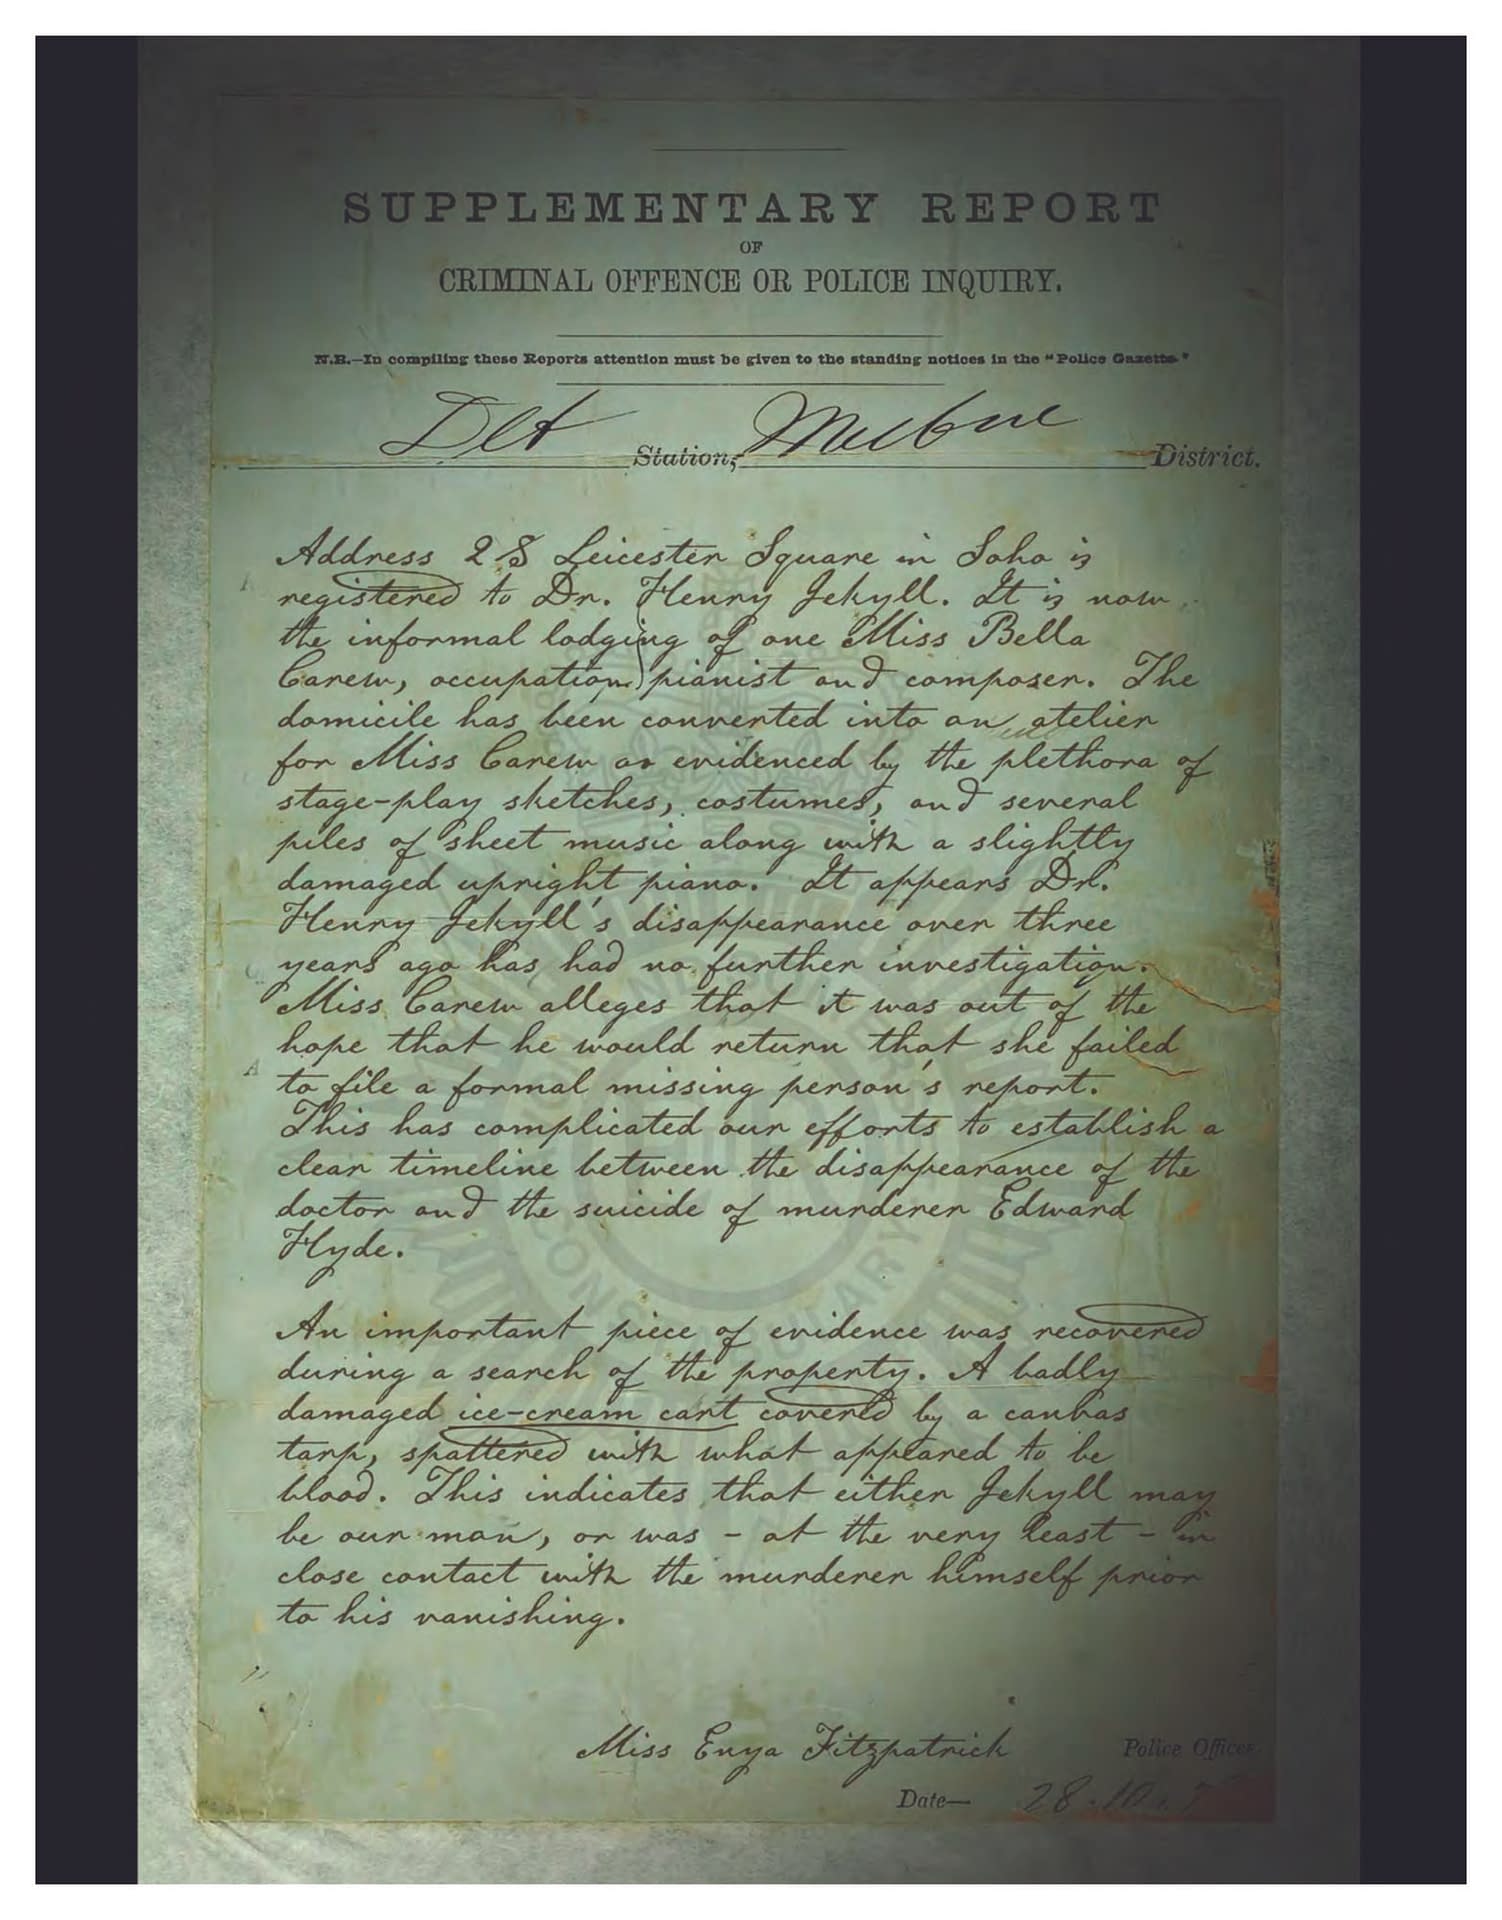 SUPPLEMENTARY REPORT
OF
CRIMINAL OFFENCE OR POLICE INQUIRY.
N.B.—In compiling these Reports attention must be given to the standing notices in the "Police Gazette."
Station, District.
Address 28 Leicester Square in Soho is
registered to Dr. Henry Jekyll. It is now
the informal lodging of one Miss Bella
Carew, occupation pianist and composer. The
domicile has been converted into an atelier
for Miss Carew as evidenced by the plethora of
stage-play sketches, costumes, and several
piles of sheet music along with a slightly
damaged upright piano. It appears Dr.
Henry Jekyll's disappearance over three
years ago has had no further investigation.
Miss Carew alleges that it was out of the
hope that he would return that she failed
to file a formal missing person's report.
This has complicated our efforts to establish a
clear timeline between the disappearance of the
doctor and the suicide of murderer Edward
Hyde.
An important piece of evidence was recovered
during a search of the property. A badly
damaged ice-cream cart covered by a canvas
tarp, spattered with what appeared to be
blood. This indicates that either Jekyll may
be our man, or was - at the very least - in
close contact with the murderer himself prior
to his vanishing.
Miss Enya Fitzpatrick Police Officer.
Date—